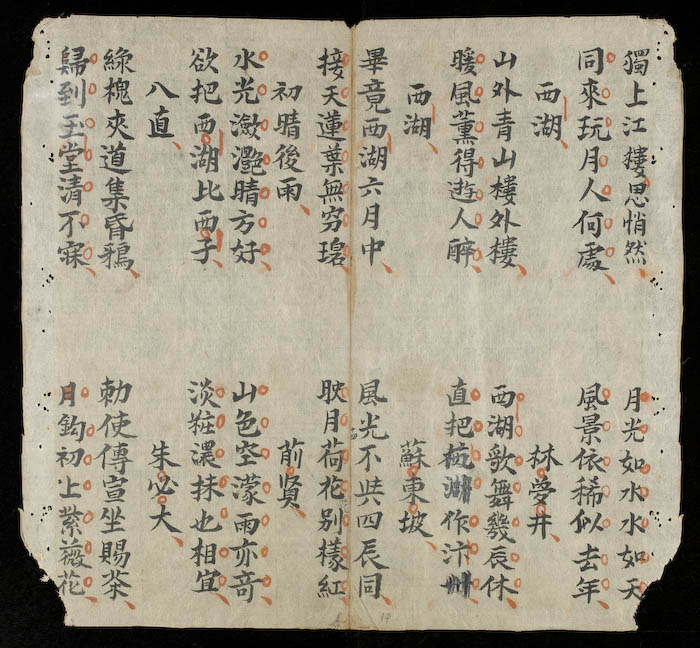 獨上江樓思悄然 月光如水水如天
同來玩月人何處 風景依稀似去年
西湖 林夢井
山外青山樓外樓 西湖歌舞幾辰休
暖風薰得遊人醉 直把杭湖作汴州
西湖 蘇東坡
畢竟西湖六月中 風光不共四辰同
接天蓮葉無穷碧 映月荷花别樣紅
初晴後雨 前賢
水光瀲灩晴方好 山色空濛雨亦竒
欲把西湖比西子 淡粧濃抹也相宜
八直 朱必大
綠槐夾道集昏鴉 勅使傳宣坐賜茶
歸到玉堂清不寐 月鈎初上紫薇花